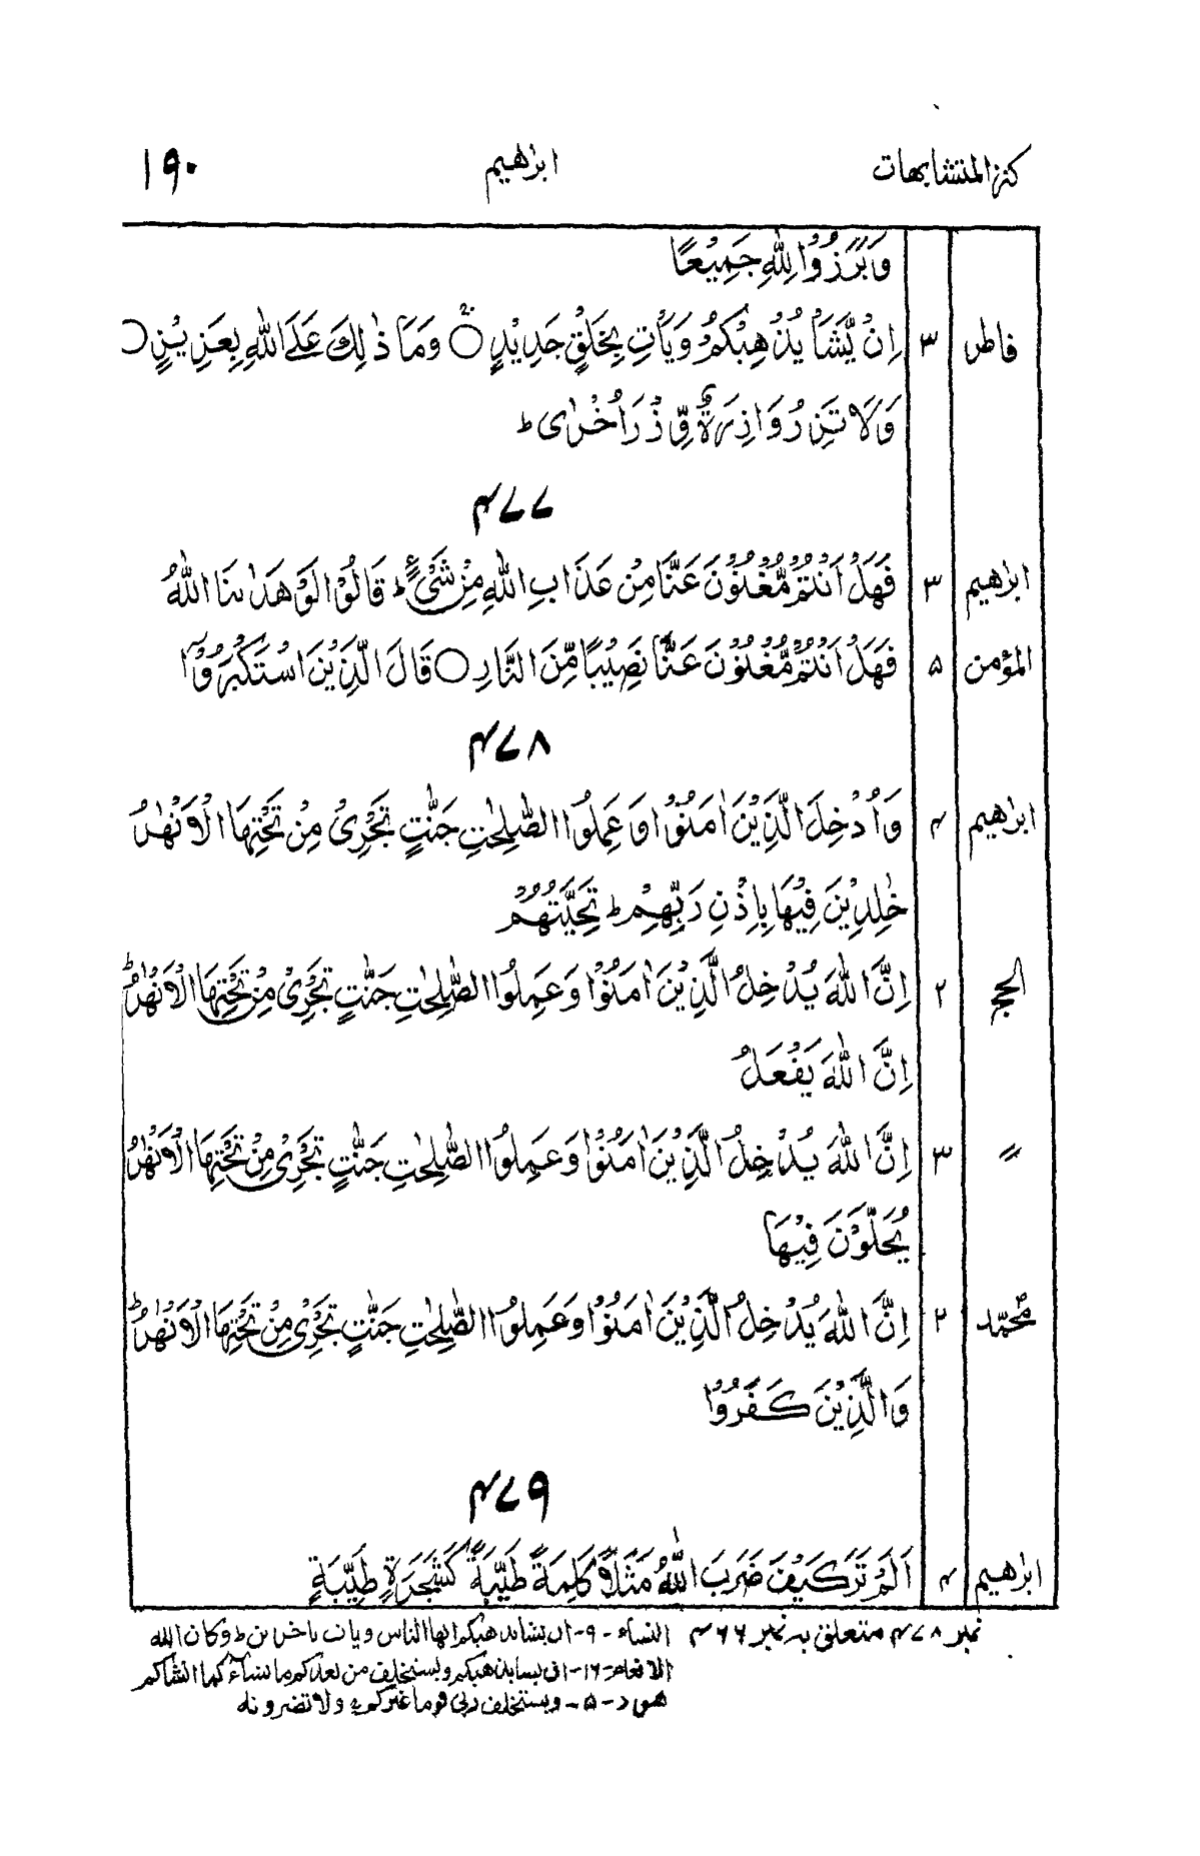 كنز المتشابهات ابراهيم ١٩٠
وَبَرَزُوْا لِلّٰهِ جَمِيْعًا
فاطر ٣ اِنْ يَّشَاْ يُذْهِبْكُمْ وَيَاْتِ بِخَلْقٍ جَدِيْدٍ ○ وَمَا ذٰلِكَ عَلَى اللّٰهِ بِعَزِيْزٍ ○
وَلَا تَزِرُ وَازِرَةٌ وِّزْرَ اُخْرٰى ط
۴۷۷
ابراهيم ٣ فَهَلْ اَنْتُمْ مُّغْنُوْنَ عَنَّا مِنْ عَذَابِ اللّٰهِ مِنْ شَىْءٍ ط قَالُوْا لَوْ هَدٰىنَا اللّٰهُ
المؤمن ۵ فَهَلْ اَنْتُمْ مُّغْنُوْنَ عَنَّا نَصِيْبًا مِّنَ النَّارِ ○ قَالَ الَّذِيْنَ اسْتَكْبَرُوْٓا
۴۷۸
ابراهيم ۴ وَاُدْخِلَ الَّذِيْنَ اٰمَنُوْا وَعَمِلُوا الصّٰلِحٰتِ جَنّٰتٍ تَجْرِىْ مِنْ تَحْتِهَا الْاَنْهٰرُ
خٰلِدِيْنَ فِيْهَا بِاِذْنِ رَبِّهِمْ ط تَحِيَّتُهُمْ
الحج ٢ اِنَّ اللّٰهَ يُدْخِلُ الَّذِيْنَ اٰمَنُوْا وَعَمِلُوا الصّٰلِحٰتِ جَنّٰتٍ تَجْرِىْ مِنْ تَحْتِهَا الْاَنْهٰرُ ط
اِنَّ اللّٰهَ يَفْعَلُ
〃 ٣ اِنَّ اللّٰهَ يُدْخِلُ الَّذِيْنَ اٰمَنُوْا وَعَمِلُوا الصّٰلِحٰتِ جَنّٰتٍ تَجْرِىْ مِنْ تَحْتِهَا الْاَنْهٰرُ
يُحَلَّوْنَ فِيْهَا
محمّد ٢ اِنَّ اللّٰهَ يُدْخِلُ الَّذِيْنَ اٰمَنُوْا وَعَمِلُوا الصّٰلِحٰتِ جَنّٰتٍ تَجْرِىْ مِنْ تَحْتِهَا الْاَنْهٰرُ ط
وَالَّذِيْنَ كَفَرُوْا
۴۷۹
ابراهيم ۴ اَلَمْ تَرَ كَيْفَ ضَرَبَ اللّٰهُ مَثَلًا كَلِمَةً طَيِّبَةً كَشَجَرَةٍ طَيِّبَةٍ
نمبر ۴۷۸ متعلق به نمبر ۴۶۶ النساء - ٩ - ان يشا يذهبكم ايها الناس ويات باخرين ط وكان الله
الانعام - ١٦ - ان يشا يذهبكم ويستخلف من بعدكم ما يشاء كما انشاكم
هود - ۵ - ويستخلف ربى قوما غيركم ج ولا تضرونه